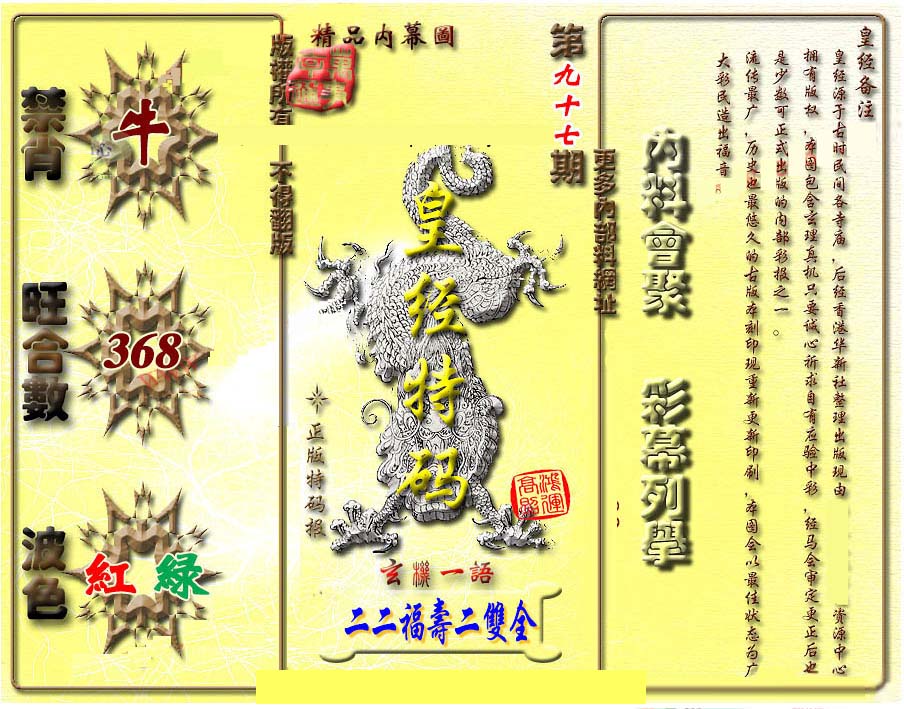 皇经备注
皇经源于古时民间各寺庙，后经香港华新社整理出版现由　　　资源中心
拥有版权，本图包含玄理真机只要诚心祈求自有应验中彩，经马会审定更正后也
是少数可正式出版的内部彩报之一。
流传最广，历史也最悠久的古版本刻印现重新更新印刷，本图会以最佳状态为广
大彩民造出福音。
内料會聚　彩幕列舉
更多内部料網址
第九十七期
精品内幕圖
皇经特码
正版特码报
鴻運高照
玄機一語
二二福壽二雙全
版權所有　不得翻版
禁肖
牛
旺合數
368
波色
紅 綠